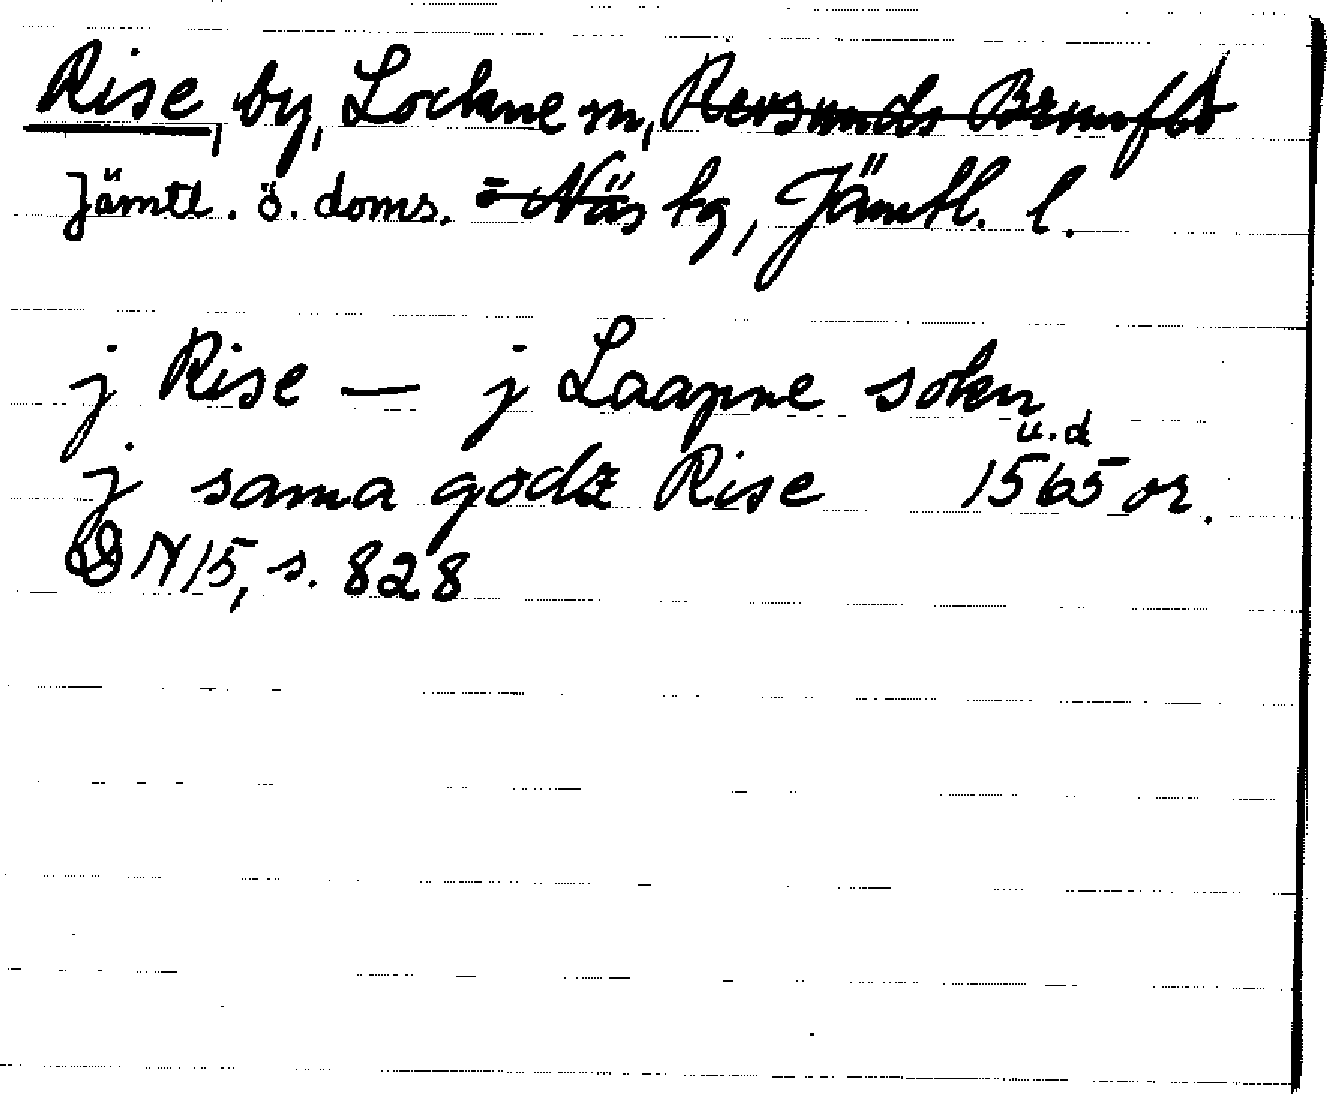 Rise, by, Lockne sn, Revsunds Brunflo
Jämtl. ö. doms. - Näs tg, Jämtl. l.
j Rise — j Laapne sokn
u.d
j sama godz Rise 1565 or.
DN 15, s. 828